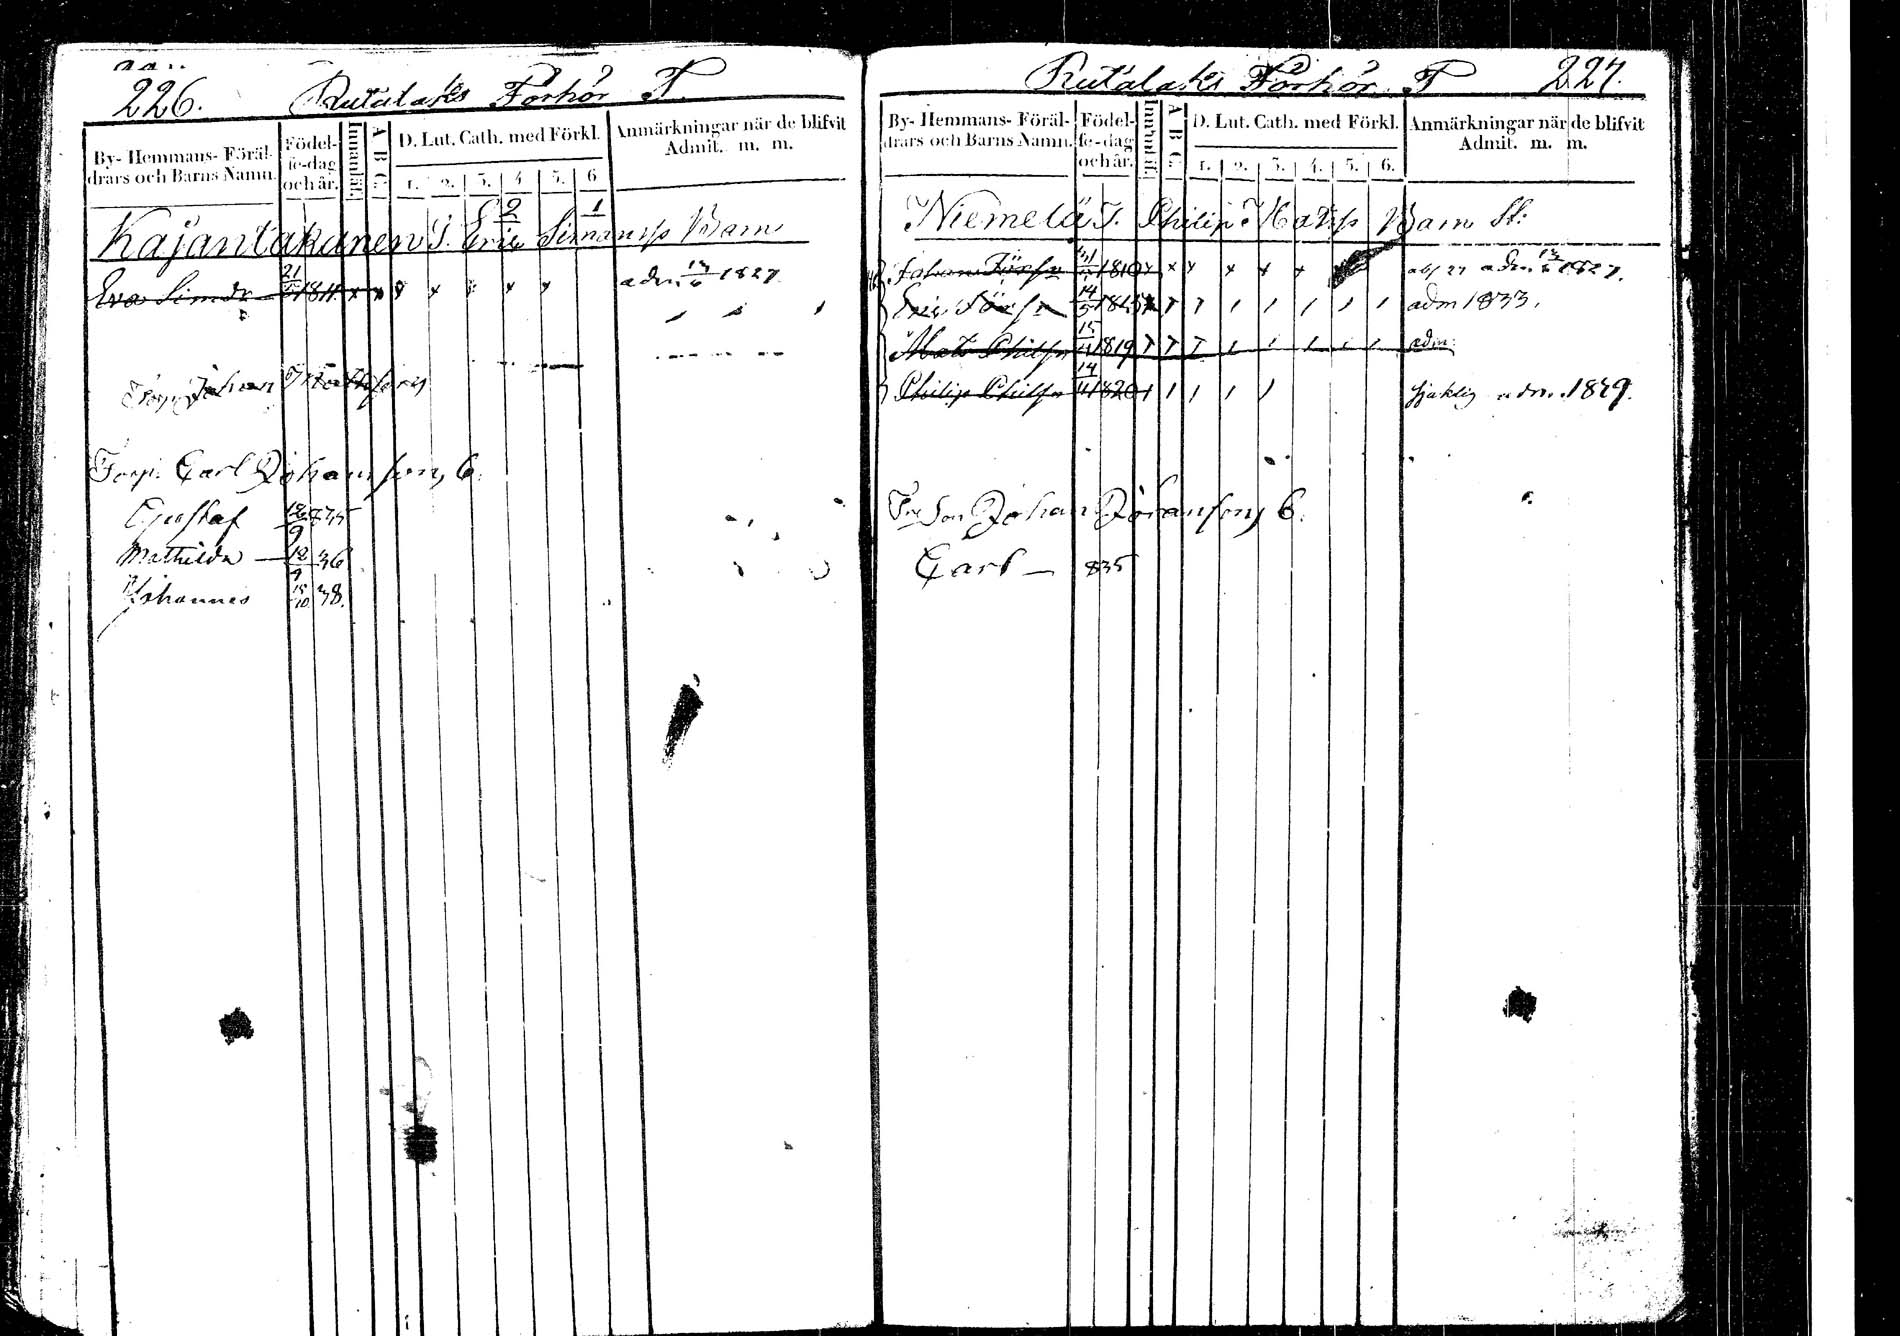 226. Rutalaks Förhör T.
By- Hemmans- Föräl-
drars och Barns Namn.
Födel-
se-dag
och år.
Innanläs.
A B C.
D. Lut. Cath. med Förkl.
1. 2. 3. 4 5. 6
Anmärkningar när de blifvit
Admit. m. m.
2 1
Kajantakanen T. Eric Simonss Barn
Eva Simdr 21/5 1811 x x x x x x x adm 13/6 1827.
Johan Mattsson
Torp. Carl Johansson, 6.
Gustaf 835
Mathilda — 12/9 36
Johannes 15/10 38.
Rutalaks Förhör T 227.
By- Hemmans- Föräl-
drars och Barns Namn.
Födel-
se-dag
och år.
Innanläs.
A B C.
D. Lut. Cath. med Förkl.
1. 2. 3. 4. 5. 6.
Anmärkningar när de blifvit
Admit. m. m.
Niemelä T. Philip Matss Barn St:
Johan 1810 x x x x x x adm 13/6 1827.
Eric 14/5 adm 1833.
Mats Philsn 15 1819 adm
Philip Philsn 14/4 1820 adm. 1839.
Son Johan Johansson, 6.
Carl — 835